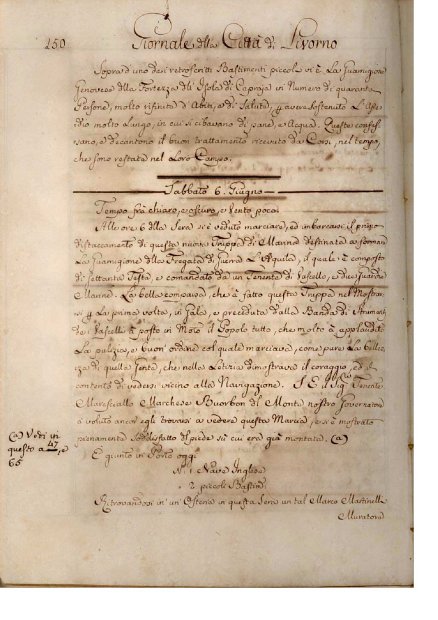 150 Giornale della Città di Livorno
Sopra d'uno dei retroscritti Bastimenti piccoli vi è la Guarnigione
Genovese della Fortezza dell'Isola di Capraja in Numero di quaranta
Persone, molto rifinita d'Abiti, e di Salute, p avere sostenuto l'Asse
dio molto Lungo, in cui si cibavano di pane, e Acqua. Queste confes
sano, e decantono il buon trattamento ricevuto da' Corsi, nel tempo,
che sono restate nel Loro Campo.
Sabbato 6. Giugno
Tempo frà chiaro, e oscuro, e Vento poco.
Alle ore 6 della Sera si è veduto marciare, ed imbarcare il primo
Distaccamento di questa nuova Truppa di Marina destinata a formare
La Guarnigione della Fregata di Guerra L'Aquila, il quale è composto
di settanta Teste, e comandato da un Tenente di Vascello, e due Guardie
Marine. La bella comparsa, che à fatto questa Truppa nel Mostrar
si p La prima volta, in Gala, e preceduta dalla Banda di Strumenti
de Vascelli à posto in Moto il Popolo tutto, che molto à applaudito
La pulizia, e buon'ordine col quale marciava, come pure La bellez
za di quella Gente, che nella Letizia dimostrava il coraggio, ed il
contento di vedersi vicino alla Navigazione. S. E. il Sig. Generale
Maresciallo Marchese Bourbon del Monte nostro Governatore
à voluto ancor egli trovarsi a vedere questa Marcia, e si è mostrato
pienamente soddisfatto del piede sù cui era già montata. (a)
(a) Vedi in
questo a 47, e
65
È giunto in Porto oggi
N. 1. Nave Inglese
2 piccoli Bastim.
Ritrovandosi in un'Osteria in questa Sera un tal Marco Martinelli
Muratore